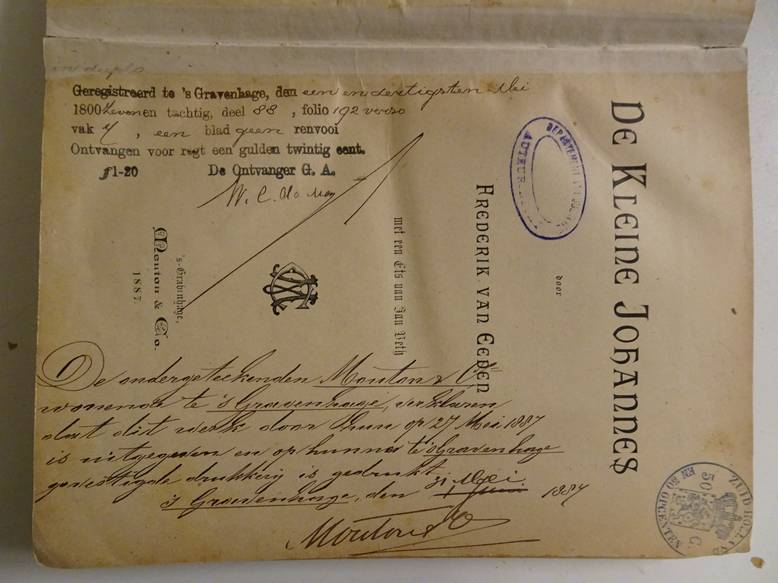 in duplo
Geregistreerd te 's Gravenhage, den een en dertigsten Mei
1800 zeven en tachtig, deel 88, folio 192 verso
vak 7, een blad geen renvooi
Ontvangen voor regt een gulden twintig cent.
ƒ1-20 De Ontvanger G. A.
DE KLEINE JOHANNES
door
FREDERIK VAN EEDEN
met een Ets van Jan Veth
's-Gravenhage,
Mouton & Co.
1887.
De ondergeteekenden Mouton & Co
wonende te 's Gravenhage, verklaren
dat dit werk door hun op 27 Mei 1887
is uitgegeven en op hunne te 's Gravenhage
gevestigde drukkerij is gedrukt.
's Gravenhage, den 31 Mei 1887
Mouton & Co
DEPARTEMENT
AUTEUR
ZUID HOLLAND
50 C.
EN 50 OPCENTEN